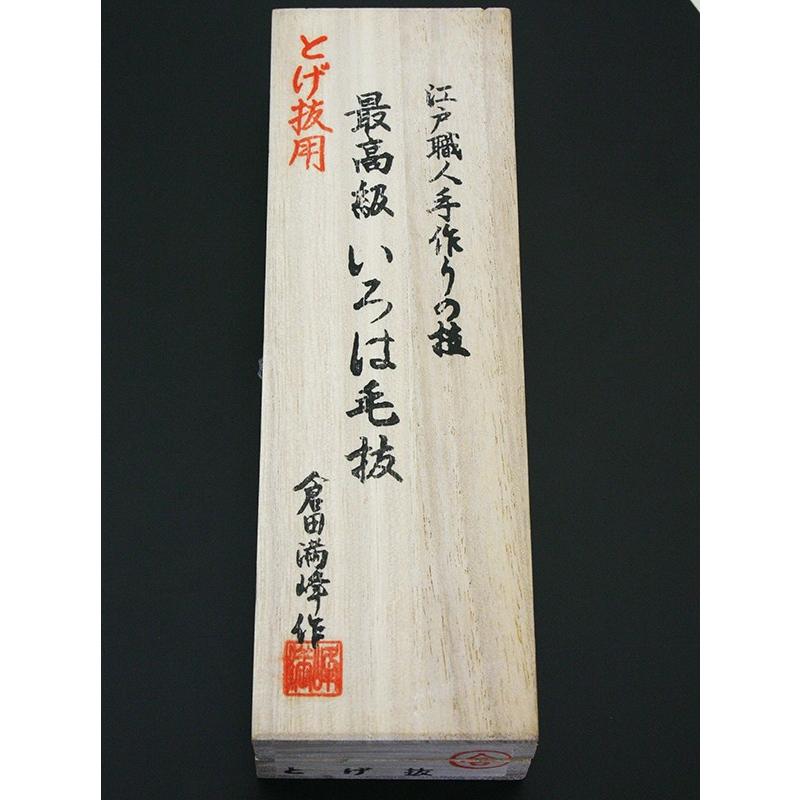 江戸職人手作りの技
最高級 いろは毛抜
とげ抜用
倉田満峰作
満峰
とげ抜